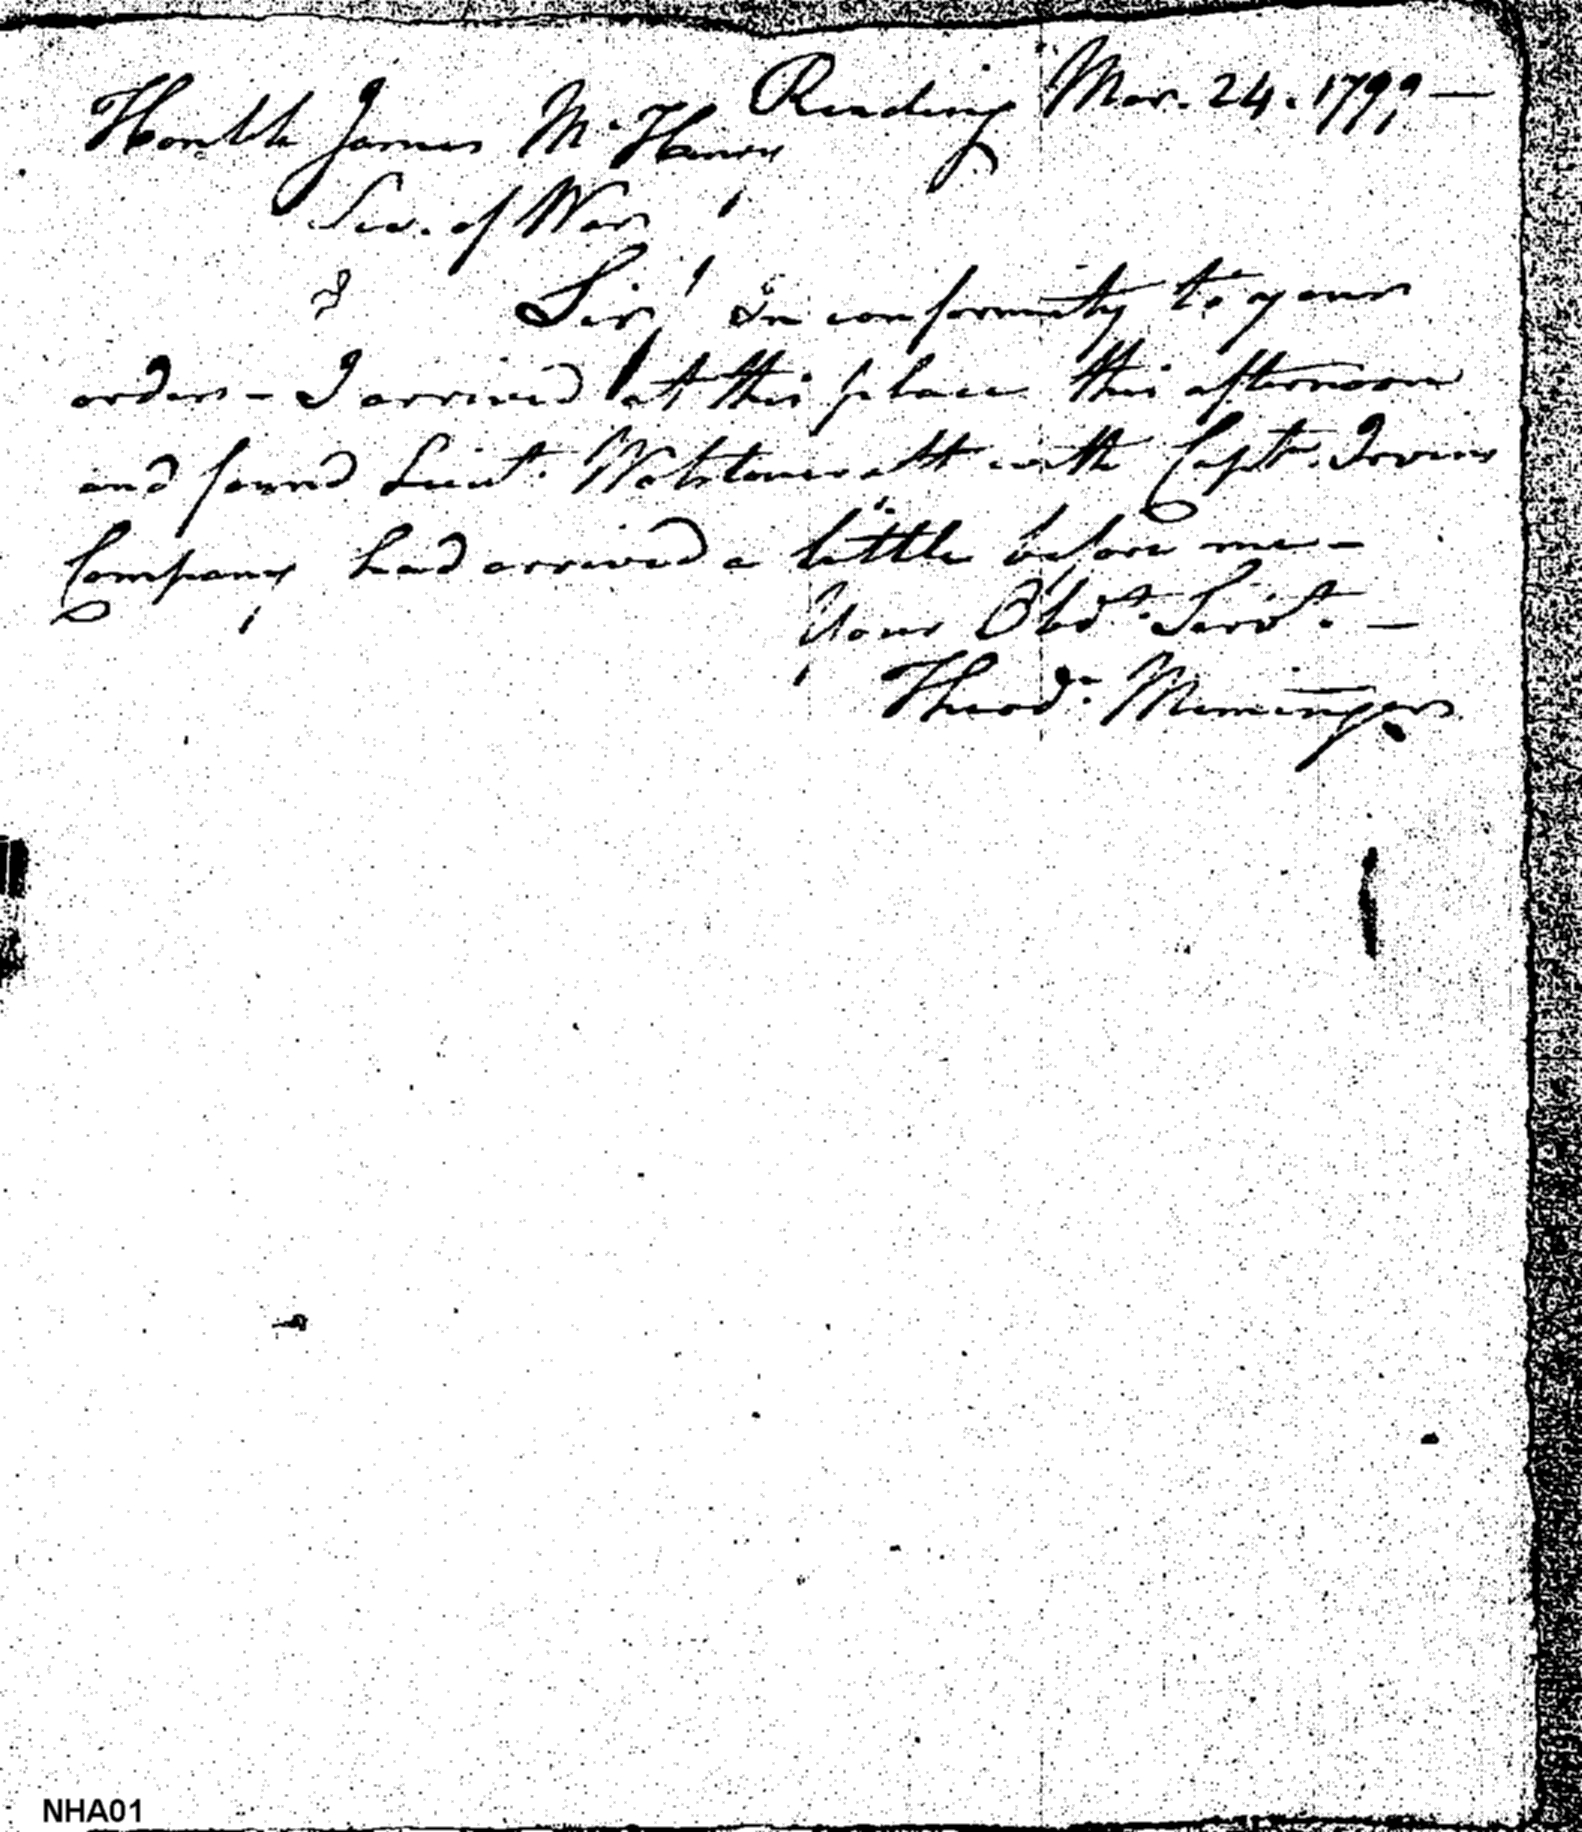 Reading Mar. 24. 1799 —
Honble James McHenry
Sec. of War
Sir, In conformity to your
orders - I arrived at this place this afternoon
and found Lieut. Wolstonecraft with Capt. Irvine
Company had arrived a little before me -
Your Obdt. Servt. —
Theodr. Meminger
NHA01